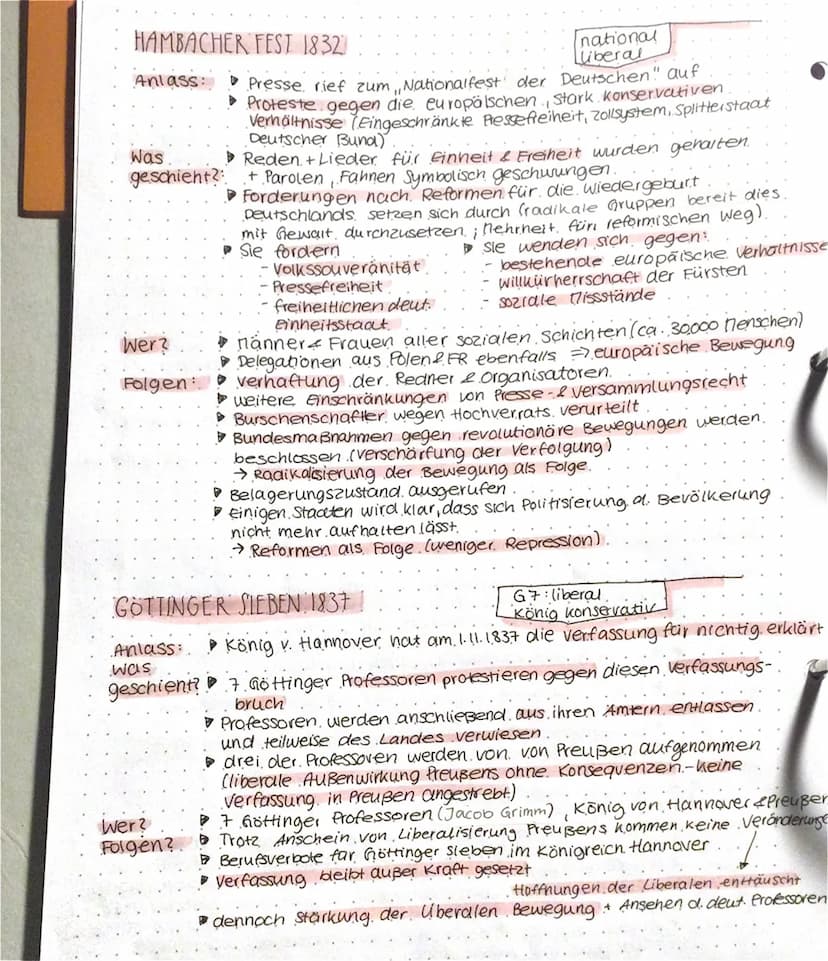 HAMBACHER FEST 1832
national
liberal
Anlass: ▶ Presse rief zum „Nationalfest der Deutschen" auf
▶ Proteste gegen die europäischen, stark konservativen
Verhältnisse (Eingeschränkte Pressefreiheit, Zollsystem, Splitterstaat
Deutscher Bund)
Was ▶ Reden + Lieder für Einheit & Freiheit wurden gehalten
geschieht?: + Parolen, Fahnen Symbolisch geschwungen
▶ Forderungen nach Reformen für die Wiedergeburt
Deutschlands setzen sich durch (radikale Gruppen bereit dies
mit Gewalt durchzusetzen; Mehrheit für reformischen Weg)
▶ Sie fordern
- Volkssouveränität
- Pressefreiheit
- freiheitlichen deut.
Einheitsstaat
▶ Sie wenden sich gegen:
- bestehende europäische Verhältnisse
- Willkürherrschaft der Fürsten
- soziale Missstände
Wer? ▶ Männer & Frauen aller sozialen Schichten (ca. 30.000 Menschen)
▶ Delegationen aus Polen & FR ebenfalls ⇒ europäische Bewegung
Folgen: ▶ Verhaftung der Redner & Organisatoren
▶ weitere Einschränkungen von Presse- & Versammlungsrecht
▶ Burschenschaftler wegen Hochverrats verurteilt
▶ Bundesmaßnahmen gegen revolutionäre Bewegungen werden
beschlossen (Verschärfung der Verfolgung)
→ Radikalisierung der Bewegung als Folge
▶ Belagerungszustand ausgerufen
▶ Einigen Staaten wird klar, dass sich Politisierung d. Bevölkerung
nicht mehr aufhalten lässt
→ Reformen als Folge (weniger Repression)
GÖTTINGER SIEBEN 1837
G7: liberal
König konservativ
Anlass: ▶ König v. Hannover hat am 1.11.1837 die Verfassung für nichtig erklärt
was
geschieht? ▶ 7 Göttinger Professoren protestieren gegen diesen Verfassungs-
bruch
▶ Professoren werden anschließend aus ihren Ämtern entlassen
und teilweise des Landes verwiesen
▶ drei der Professoren werden von von Preußen aufgenommen
(liberale Außenwirkung Preußens ohne Konsequenzen - keine
Verfassung in Preußen angestrebt)
Wer? ▶ 7 Göttinger Professoren (Jacob Grimm), König von Hannover & Preußen
Folgen? ▶ Trotz Anschein von Liberalisierung Preußens kommen keine Veränderunge
▶ Berufsverbote für Göttinger Sieben im Königreich Hannover
▶ Verfassung bleibt außer Kraft gesetzt
Hoffnungen der Liberalen enttäuscht
▶ dennoch Stärkung der Liberalen Bewegung + Ansehen d. deut. Professoren